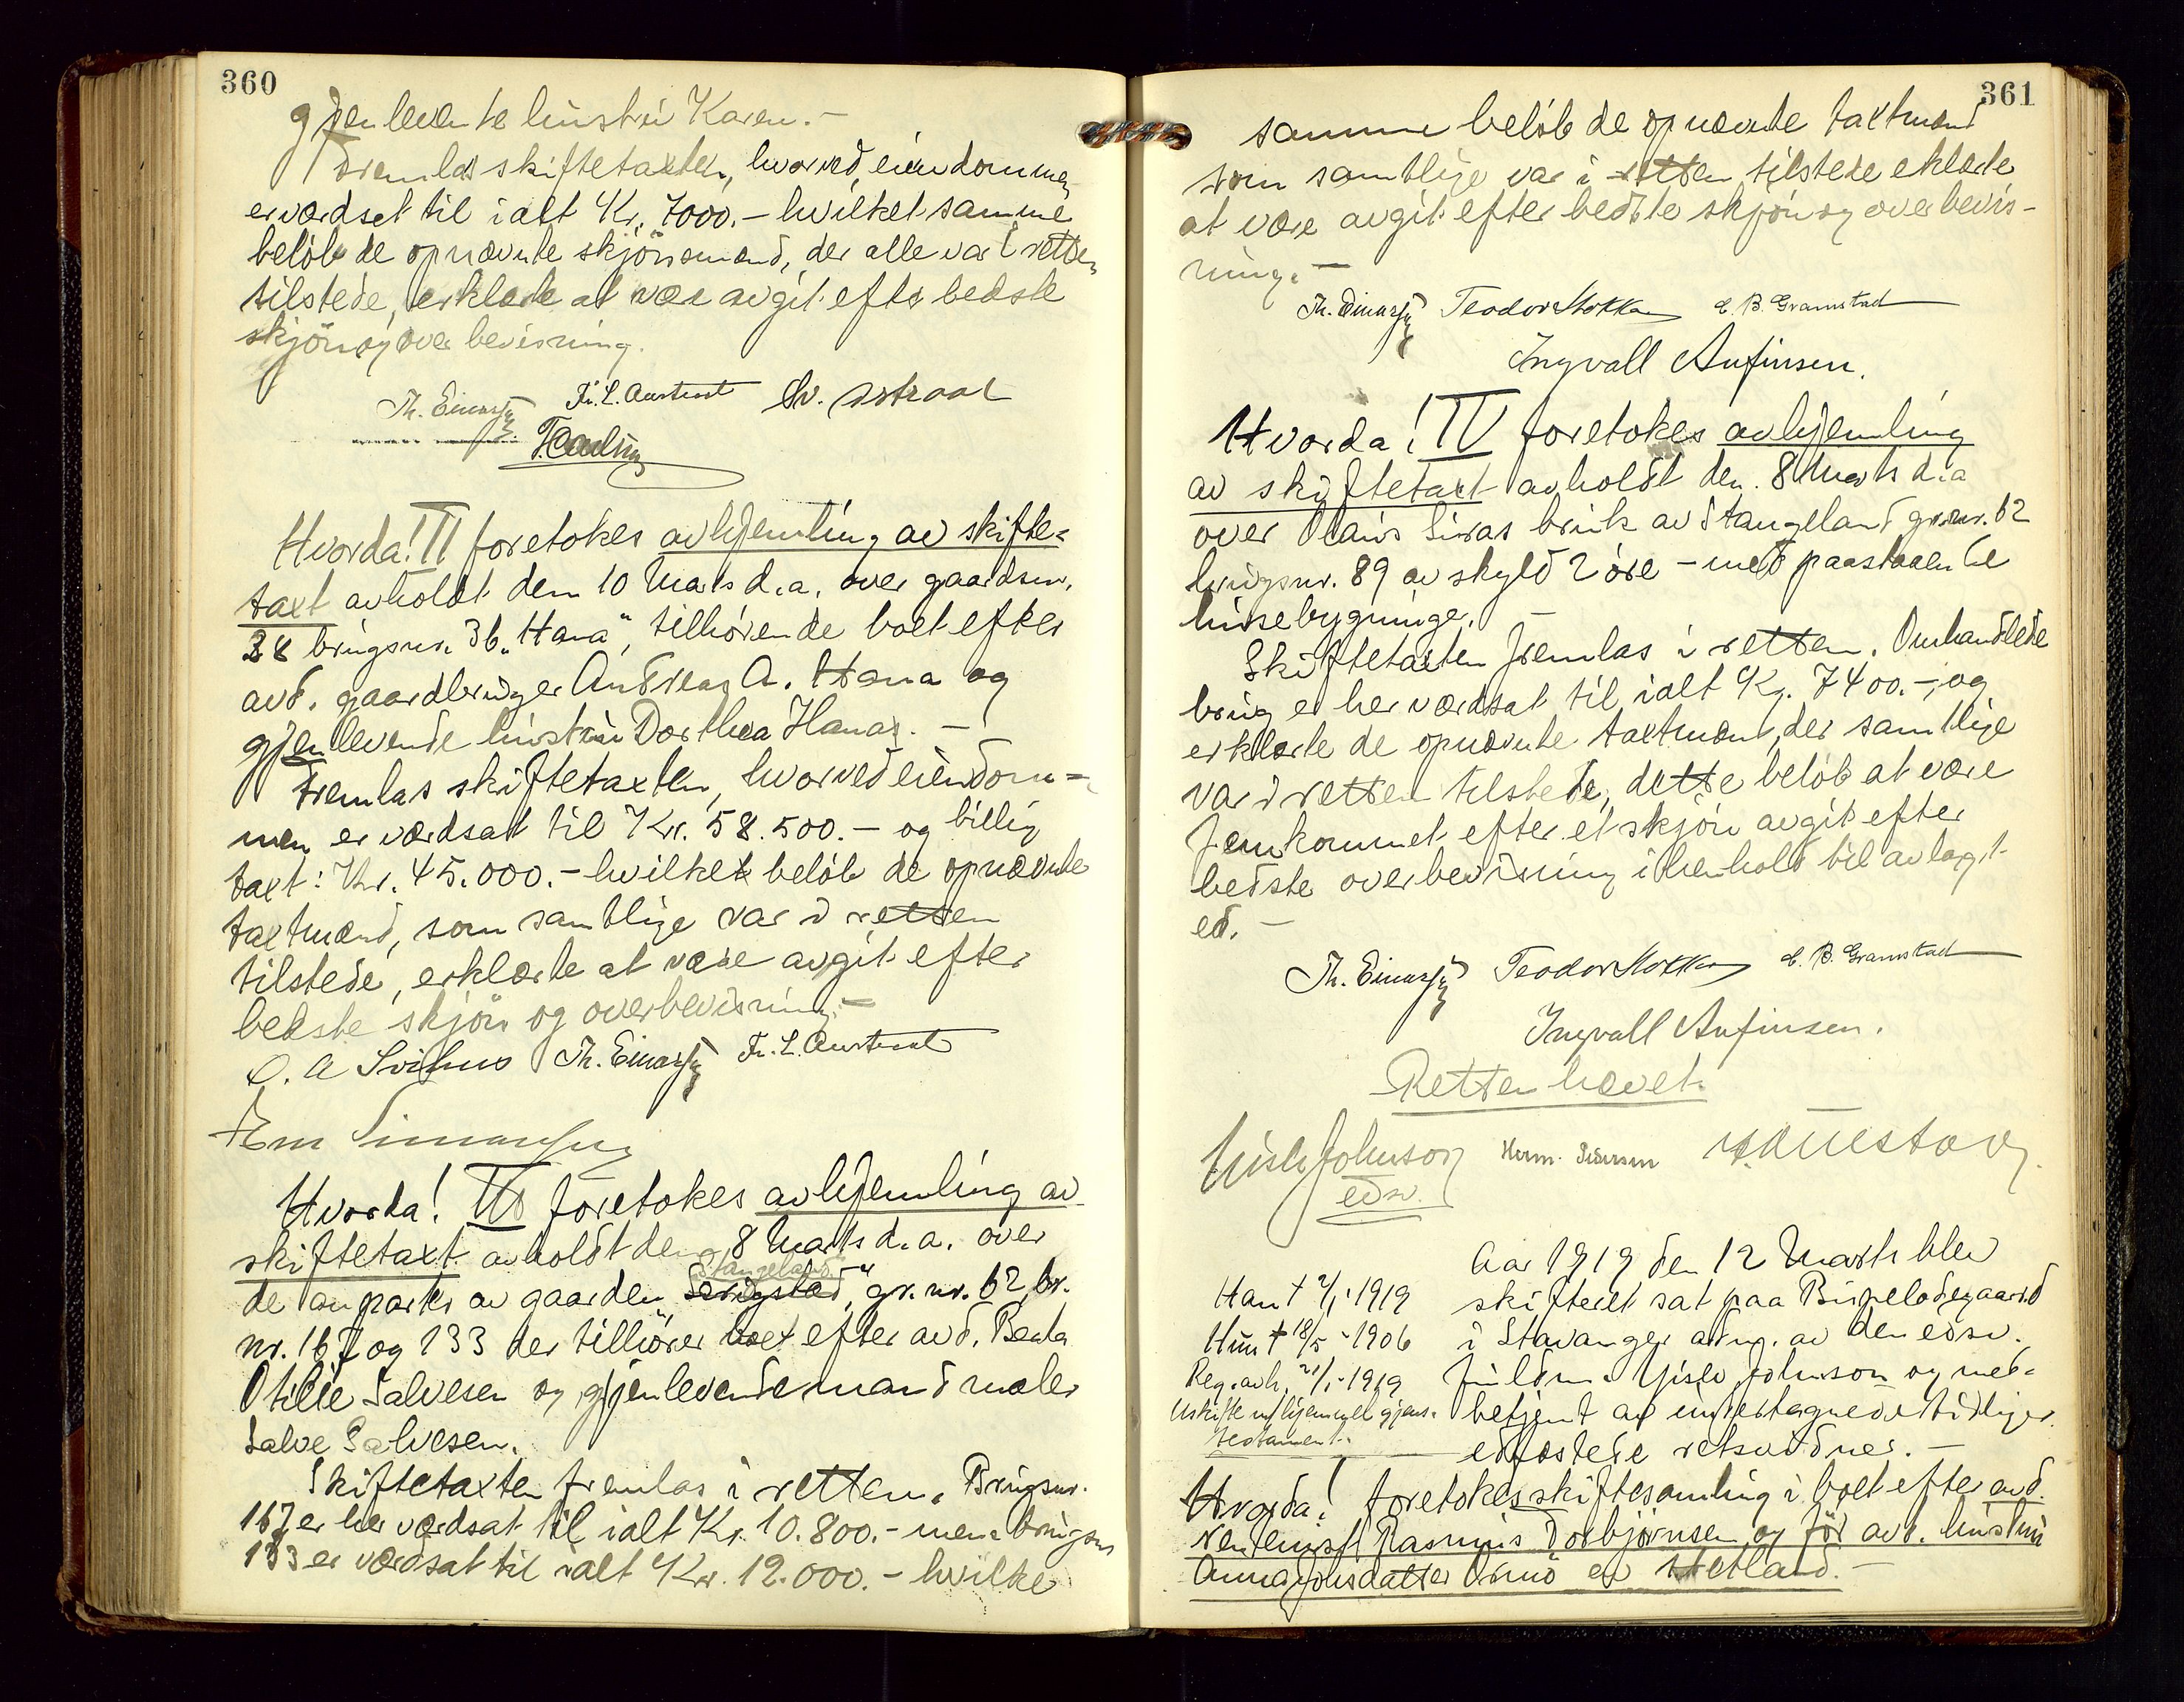 360
gjenlevende hustru Karen. –
Fremlas skiftetaxten, hvorved eiendommen
er værdset til i alt Kr. 7000.– hvilket samme
beløb de opnævnte skjønsmænd, der alle var i retten
tilstede, erklærte at være avgit efter bedste
skjøn og overbevisning.
Th. Einarsen Fr. L. Austraat Sv. Astraat
Paulsen
Hvorda! II foretokes avhjemling av skifte-
taxt avholdt den 10 Marts d.a. over gaardsnr.
38 brugsnr. 36 „Hana“, tilhørende boet efter
avd. gaardbruger Andreas A. Hana og
gjenlevende hustru Dorthea Hana. –
Fremlas skiftetaxten, hvorved eiendom-
men er værdsat til Kr. 58.500.– og billig
taxt: Kr. 45.000.– hvilket beløb de opnævnte
taxtmænd, som samtlige var i retten
tilstede, erklærte at være avgit efter
bedste skjøn og overbevisning. –
O. A Svihus Th. Einarsen Fr. L. Austraat
Em Simonsen
Hvorda! III foretokes avhjemling av
skiftetaxt avholdt den 8 Marts d.a. over
Stangeland
de anparter av gaarden „ “ gr. nr. 62, br.
nr. 167 og 133 der tilhører boet efter avd. Berta
Otilie Salvesen og gjenlevende mand maler
Salve Salvesen.
Skiftetaxten fremlas i retten. Brugsnr.
167 er her værdsat til ialt Kr. 10.800.– mens brugsnr
133 er værdsat til ialt Kr. 12.000.– hvilke
361
samme beløb de opnævnte taxtmænd
som samtlige var i retten tilstede erklærte
at være avgit efter bedste skjøn og overbevis-
ning. –
Th. Einarsen Teodor Mokka E. B. Gramstad
Ingvall Anfinsen.
Hvorda! IV foretokes avhjemling
av skiftetaxt avholdt den 8 Marts d.a
over Olaus Siras bruk av Stangeland gr.nr. 62
brugsnr. 89 av skyld 2 øre – med paastaaende
husebygninger. –
Skiftetaxten fremlas i retten. Omhandlede
brug er her værdsat til ialt Kr. 7400.–, og
erklærte de opnævnte taxtmænd, der samtlige
var i retten tilstede, dette beløb at være
fremkommet efter et skjøn avgit efter
bedste overbevisning i henhold til avlagt
ed. –
Th. Einarsen Teodor Mokka E. B. Gramstad
Ingvall Anfinsen.
Retten hævet.
Gisle Johnson Herm. Pedersen
edsv.
Aar 1919 den 12 Marts blev
Han † 2/1 1919 skifteret sat paa Bispeladegaard
Hun † 18/5 - 1906 i Stavanger adm. av den edsv.
Reg. avh. 21/1 - 1919 fuldm. Gisle Johnson og med-
Uskifte m/ hjemmel gjens. betjent av undertegnede tidligere
testament. edfæstede retsvidner. –
Hvorda! foretokes skiftesamling i boet efter avd.
rentenist Rasmus Torbjørnsen og før avd. hustru
Anna Jonsdatter Ormø av Hetland. –